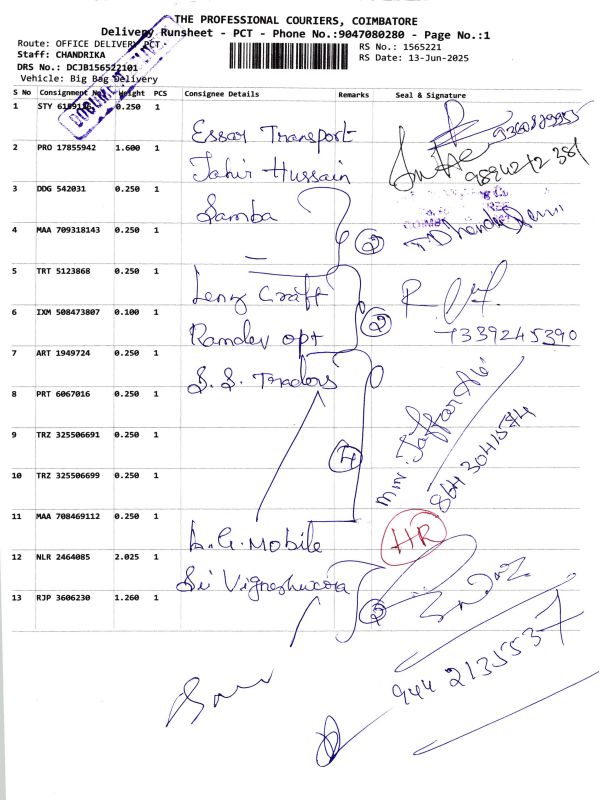 THE PROFESSIONAL COURIERS, COIMBATORE
Delivery Runsheet - PCT - Phone No.:9047080280 - Page No.:1
Route: OFFICE DELIVERY PCT
RS No.: 1565221
Staff: CHANDRIKA
RS Date: 13-Jun-2025
DRS No.: DCJB156522101
Vehicle: Big Bag Delivery
S No Consignment No Weight PCS Consignee Details Remarks Seal & Signature
1 STY 0.250 1 Essar Transport 9360889955
2 PRO 17855942 1.600 1 Jahir Hussain
3 DDG 542031 0.250 1 Samba
4 MAA 709318143 0.250 1 2
5 TRT 5123868 0.250 1 Leny Craft
6 IXM 508473807 0.100 1 Ramdev opt 2 7339245390
7 ART 1949724 0.250 1 S.S. Traders
8 PRT 6067016 0.250 1
9 TRZ 325506691 0.250 1 4
10 TRZ 325506699 0.250 1
11 MAA 708469112 0.250 1 L.G. Mobile HR
12 NLR 2464085 2.025 1 Sri Vigneshwara
13 RJP 3606230 1.260 1 2
944 2135537